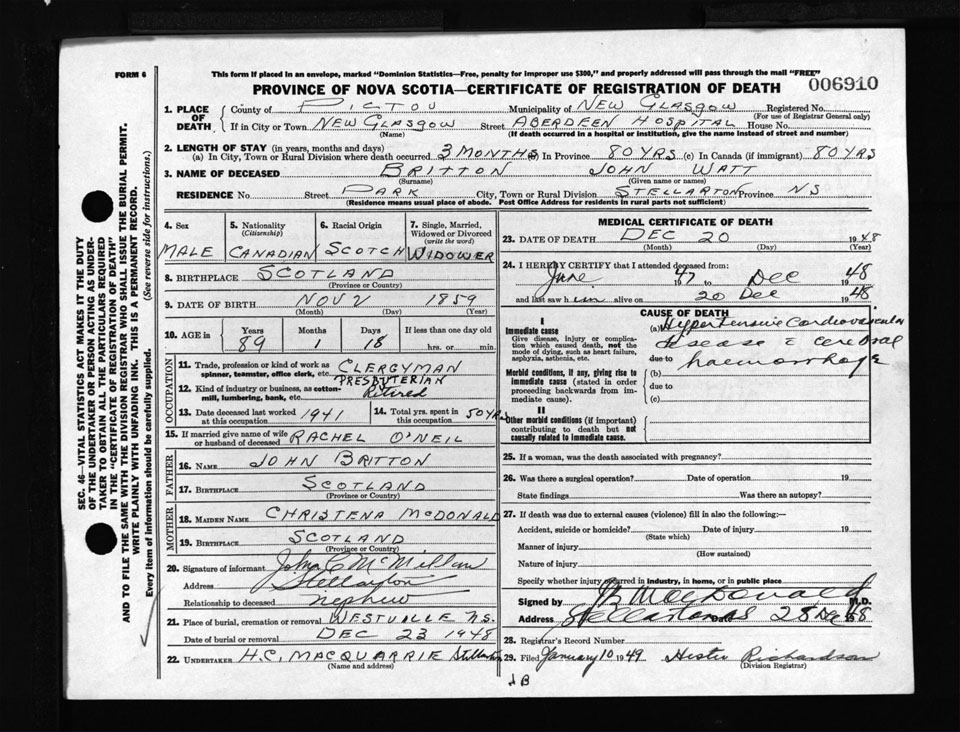 FORM 6
This form if placed in an envelope, marked "Dominion Statistics—Free, penalty for improper use $300," and properly addressed will pass through the mail "FREE"
PROVINCE OF NOVA SCOTIA—CERTIFICATE OF REGISTRATION OF DEATH
006910
1. PLACE OF DEATH
County of PICTOU Municipality of NEW GLASGOW Registered No.
(For use of Registrar General only)
If in City or Town NEW GLASGOW Street ABERDEEN HOSPITAL House No.
(Name) (If death occurred in a hospital or institution, give the name instead of street and number)
2. LENGTH OF STAY (in years, months and days)
(a) In City, Town or Rural Division where death occurred 3 MONTHS (b) In Province 80 YRS (c) In Canada (if immigrant) 80 YRS
3. NAME OF DECEASED BRITTON JOHN WATT
(Surname) (Given name or names)
RESIDENCE No. Street PARK City, Town or Rural Division STELLARTON Province NS
(Residence means usual place of abode. Post Office Address for residents in rural parts not sufficient)
4. Sex MALE
5. Nationality (Citizenship) CANADIAN
6. Racial Origin SCOTCH
7. Single, Married, Widowed or Divorced (write the word) WIDOWER
8. BIRTHPLACE SCOTLAND
(Province or Country)
9. DATE OF BIRTH NOV 2 1859
(Month) (Day) (Year)
10. AGE in Years Months Days If less than one day old
89 1 18 hrs. or min.
OCCUPATION
11. Trade, profession or kind of work as spinner, teamster, office clerk, etc. CLERGYMAN
PRESBYTERIAN
12. Kind of industry or business, as cotton-mill, lumbering, bank, etc. Retired
13. Date deceased last worked at this occupation 1941
14. Total yrs. spent in this occupation 50 YRS
15. If married give name of wife or husband of deceased RACHEL O'NEIL
FATHER
16. NAME JOHN BRITTON
17. BIRTHPLACE SCOTLAND
(Province or Country)
MOTHER
18. MAIDEN NAME CHRISTENA McDONALD
19. BIRTHPLACE SCOTLAND
(Province or Country)
20. Signature of informant John C McMillan
Address Stellarton
Relationship to deceased nephew
21. Place of burial, cremation or removal WESTVILLE N.S.
Date of burial or removal DEC 23 1948
22. UNDERTAKER H.C. MACQUARRIE Stellarton
(Name and address)
MEDICAL CERTIFICATE OF DEATH
23. DATE OF DEATH DEC 20 1948
(Month) (Day) (Year)
24. I HEREBY CERTIFY that I attended deceased from:
June 1947 Dec 1948
and last saw h im alive on 20 Dec 1948
CAUSE OF DEATH
I
Immediate cause
Give disease, injury or complication which caused death, not the mode of dying, such as heart failure, asphyxia, asthenia, etc.
(a) Hypertensive Cardiovascular
disease c cerebral
due to haemorrhage
Morbid conditions, if any, giving rise to immediate cause (stated in order proceeding backwards from immediate cause).
(b)
due to
(c)
II
Other morbid conditions (if important) contributing to death but not causally related to immediate cause.
25. If a woman, was the death associated with pregnancy?
26. Was there a surgical operation? Date of operation 19
State findings Was there an autopsy?
27. If death was due to external causes (violence) fill in also the following:—
Accident, suicide or homicide? Date of injury 19
(State which)
Manner of injury
(How sustained)
Nature of injury
Specify whether injury occurred in industry, in home, or in public place
Signed by B MacDonald M.D.
Address Stellarton NS Date 28 Dec 48
28. Registrar's Record Number
29. Filed January 10 1949 Hester Richardson
(Division Registrar)
SEC. 46—VITAL STATISTICS ACT MAKES IT THE DUTY
OF THE UNDERTAKER OR PERSON ACTING AS UNDER-
TAKER TO OBTAIN ALL THE PARTICULARS REQUIRED
IN THE "CERTIFICATE OF REGISTRATION OF DEATH"
AND TO FILE THE SAME WITH THE DIVISION REGISTRAR WHO SHALL ISSUE THE BURIAL PERMIT.
WRITE PLAINLY WITH UNFADING INK. THIS IS A PERMANENT RECORD.
Every item of information should be carefully supplied. (See reverse side for instructions.)